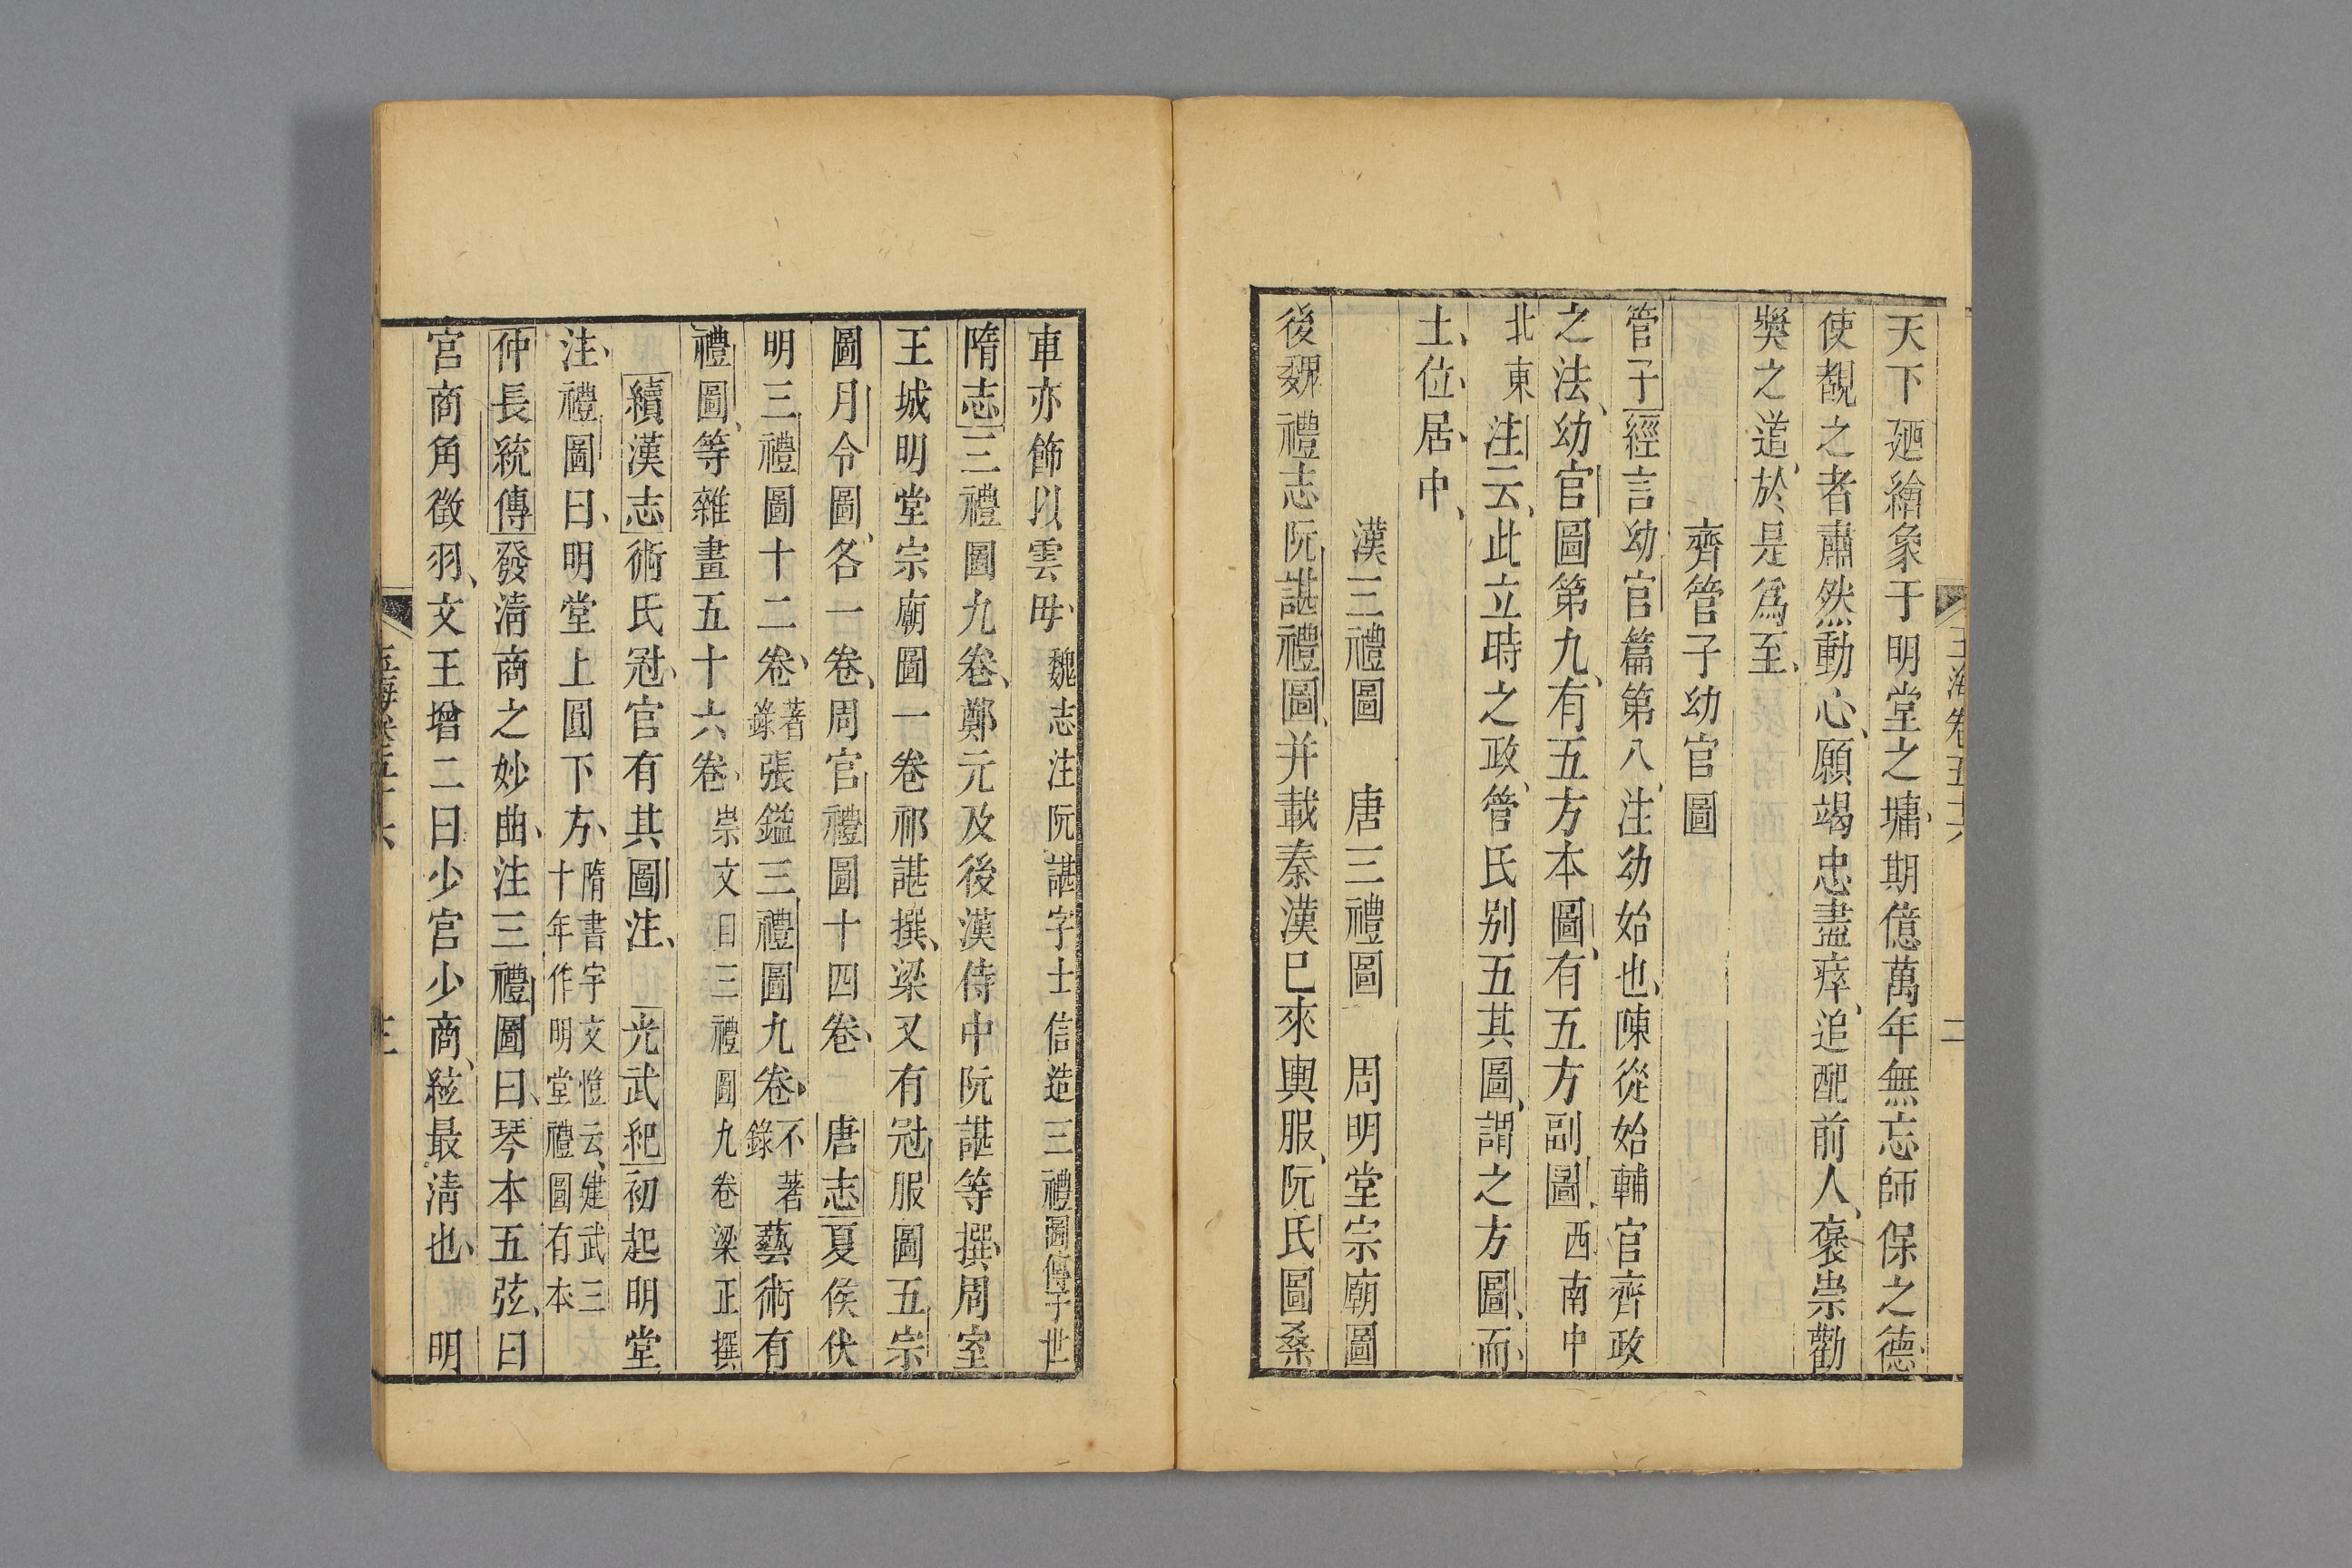 玉海卷五十六 二
天下廼繪象于明堂之墉期億萬年無忘師保之德
使觀之者肅然動心願竭忠盡瘁追配前人褒崇勸
奬之道於是爲至
齊管子幼官圖
管子經言幼官篇第八注幼始也陳從始輔官齊政
之法幼官圖第九有五方本圖有五方副圖西南中
北東注云此立時之政管氏别五其圖謂之方圖而
土位居中
漢三禮圖 唐三禮圖 周明堂宗廟圖
後魏禮志阮諶禮圖并載秦漢巳來輿服阮氏圖桑
車亦飾以雲母魏志注阮諶字士信造三禮圖傳于世
隋志三禮圖九卷鄭元及後漢侍中阮諶等撰周室
王城明堂宗廟圖一卷祁諶撰梁又有冠服圖五宗
圖月令圖各一卷周官禮圖十四卷 唐志夏侯伏
明三禮圖十二卷著錄張鎰三禮圖九卷不著錄藝術有
禮圖等雜畫五十六卷崇文目三禮圖九卷梁正撰
續漢志術氏冠官有其圖注 光武紀初起明堂
注禮圖曰明堂上圓下方隋書宇文愷云建武三十年作明堂禮圖有本
仲長統傳發淸商之妙曲注三禮圖曰琴本五弦曰
宫商角徵羽文王增二曰少宫少商絃最淸也 明
玉海卷五十六 三